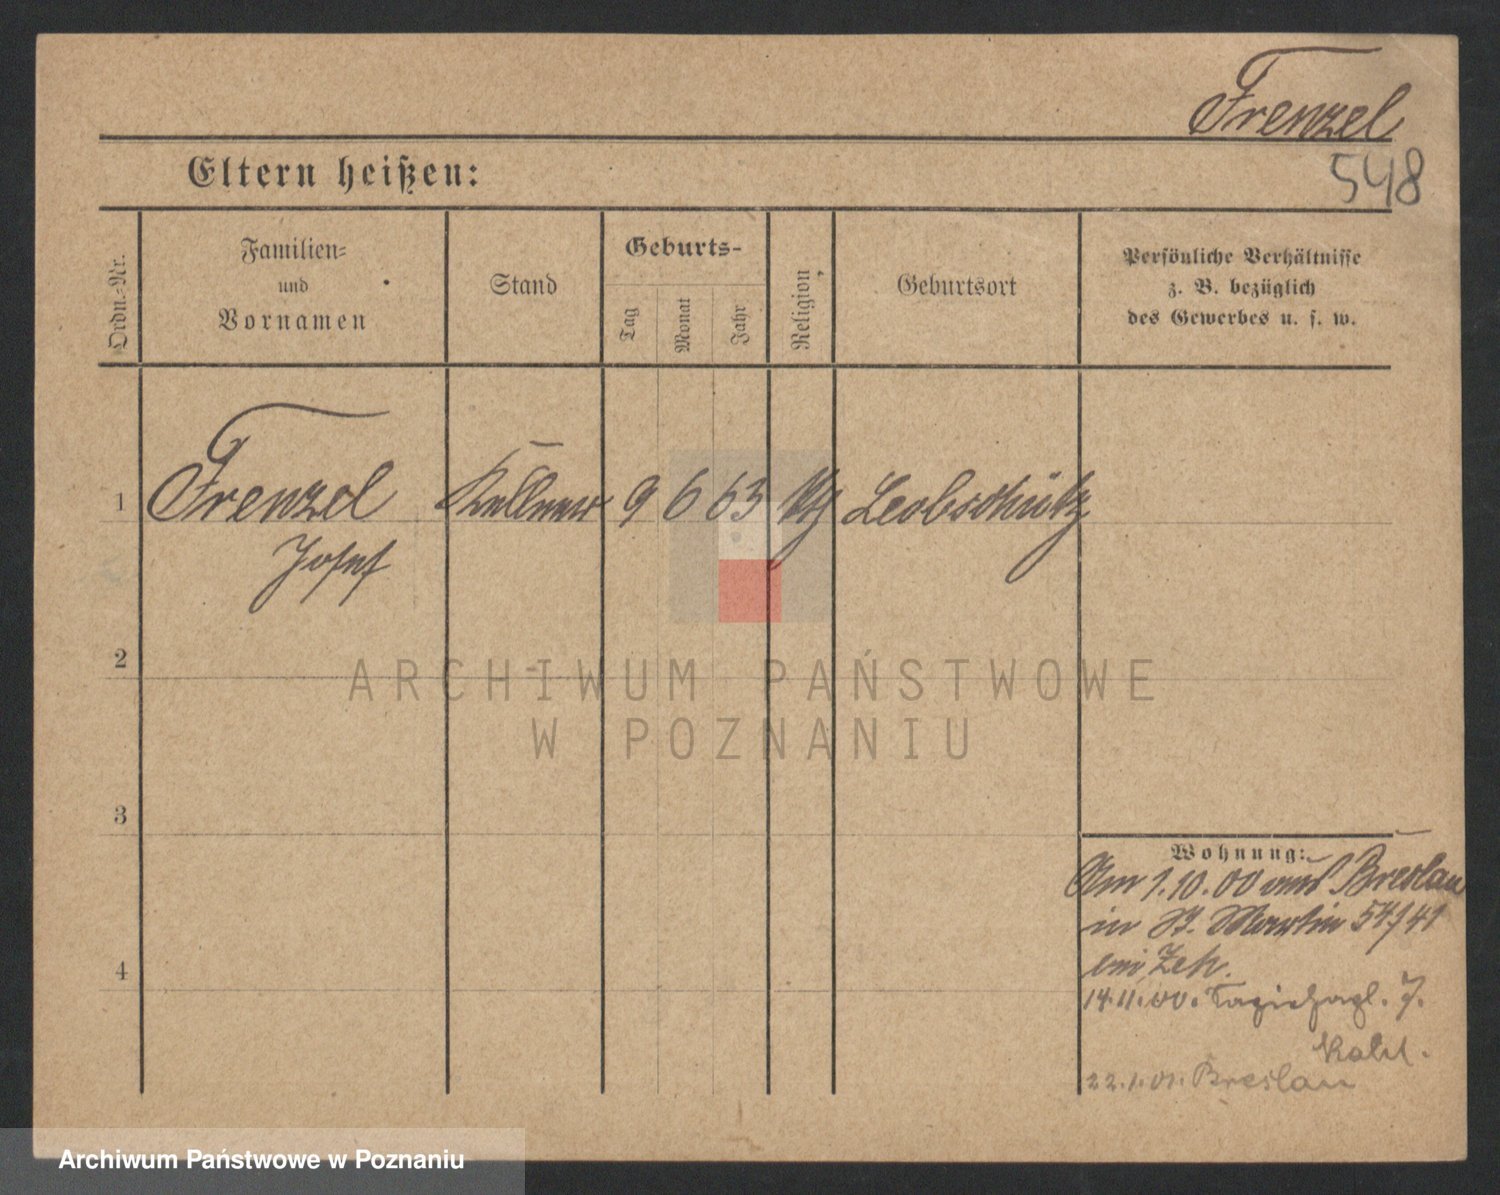 Frenzel
548
Eltern heißen:
Ordn.-Nr.
Familien-
und
Vornamen
Stand
Geburts-
Tag
Monat
Jahr
Religion
Geburtsort
Persönliche Verhältnisse
z. B. bezüglich
des Gewerbes u. s. w.
1
Frenzel
Josef
Kellner
9
6
63
Leobschütz
2
ARCHIWUM PAŃSTWOWE
W POZNANIU
3
Wohnung:
Am 1.10.00 aus Breslau
in St. Martin 54/41
bei Zeh.
4
14.11.00.
22.1.01. Breslau
Archiwum Państwowe w Poznaniu